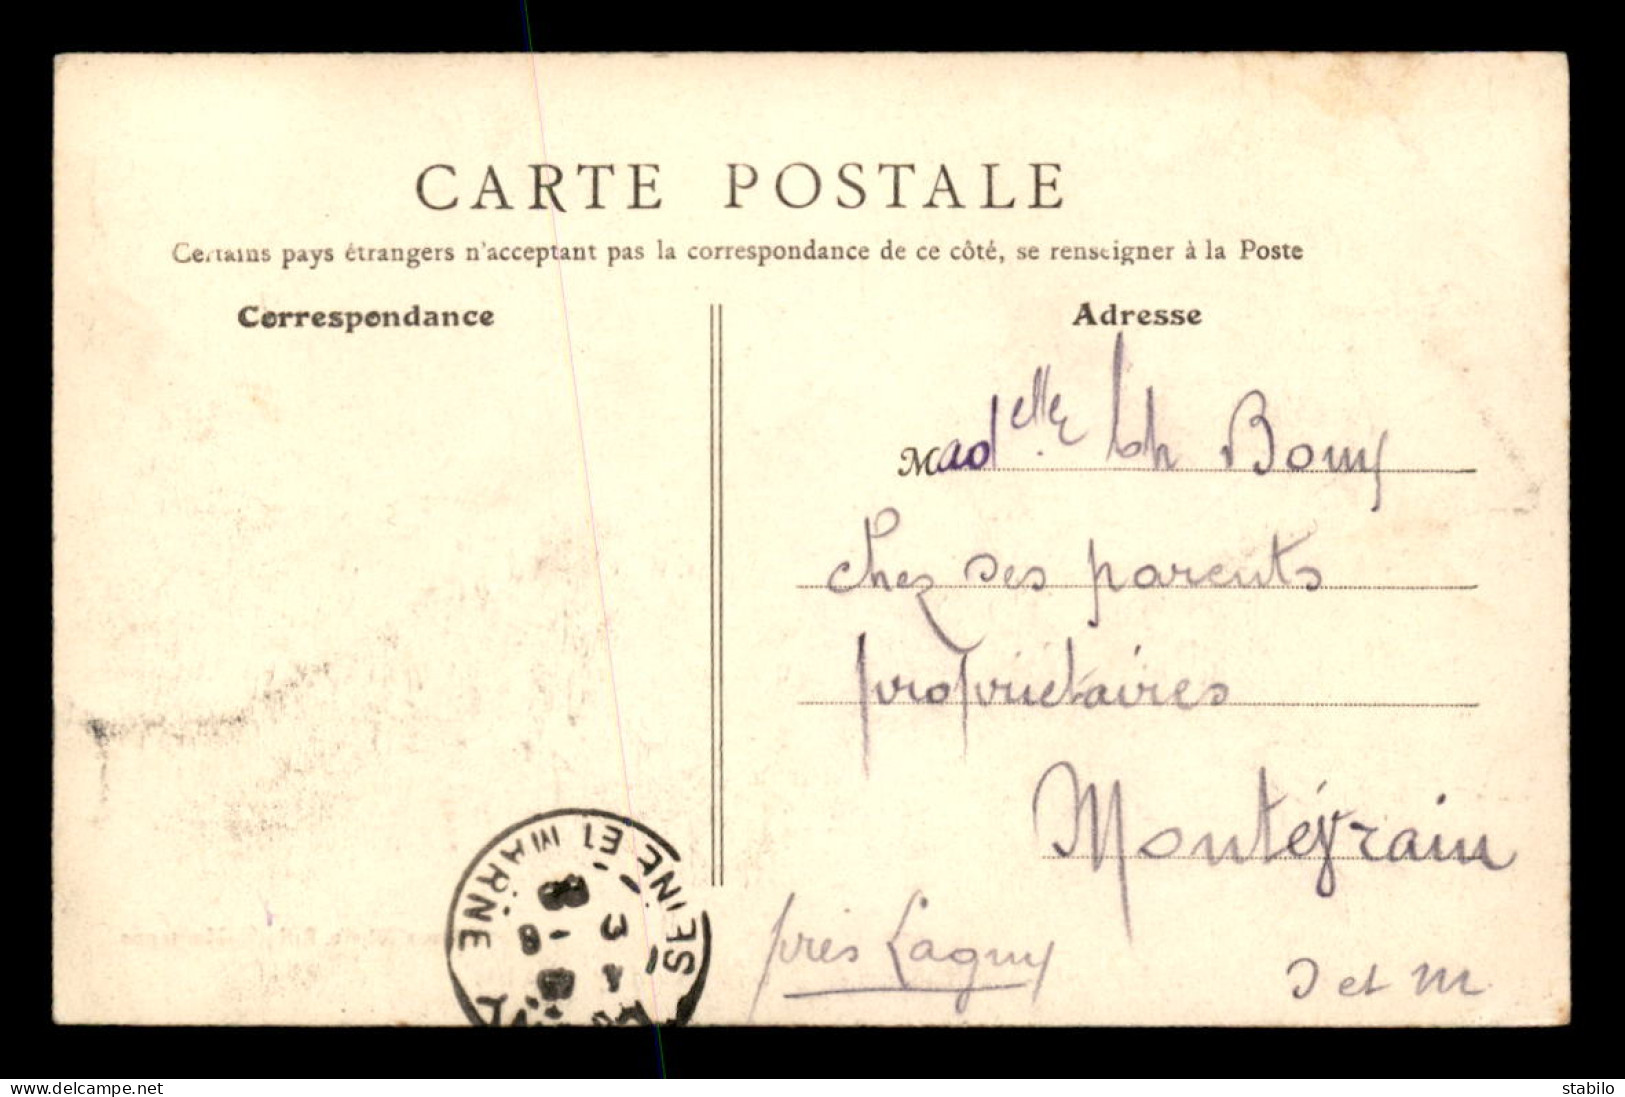 CARTE POSTALE
Certains pays étrangers n'acceptant pas la correspondance de ce côté, se renseigner à la Poste
Correspondance
Adresse
Madelle Ch Bomy
Chez ses parents
propriétaires
Montévrain
près Lagny
S et M
SEINE ET MARNE
www.delcampe.net
stabilo